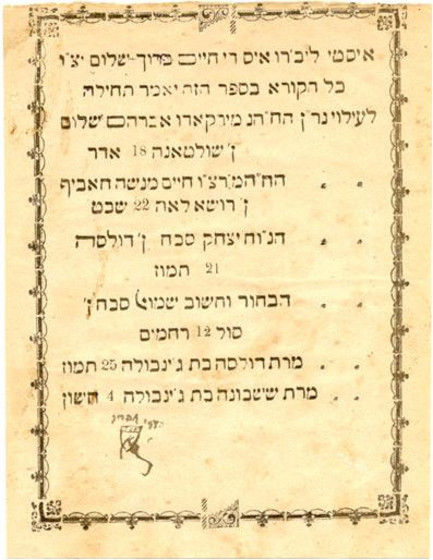 איסטי ליב׳רו איס די חיים ברוך שלום יצ״ו
כל הקורא בספר הזה יאמר תחילה
לעילוי נר״ן החה״נ מירקאדו אברהם שלום
ן׳ שולטאנה 18 אדר
„ „ החה״המר׳צ״ו חיים מנשה חאביף
ן׳ רושא לאה 22 שבט
„ „ הנ״וח יצחק סבח ן׳ דולסה
21 תמוז
„ „ הבחור וחשוב שמוא׳ סבח ן׳
סול 12 רחמים
„ „ מרת דולסה בת ג׳ינבולה 25 תמוז
„ „ מרת ששבונה בת ג׳ינבולה 4 חשון